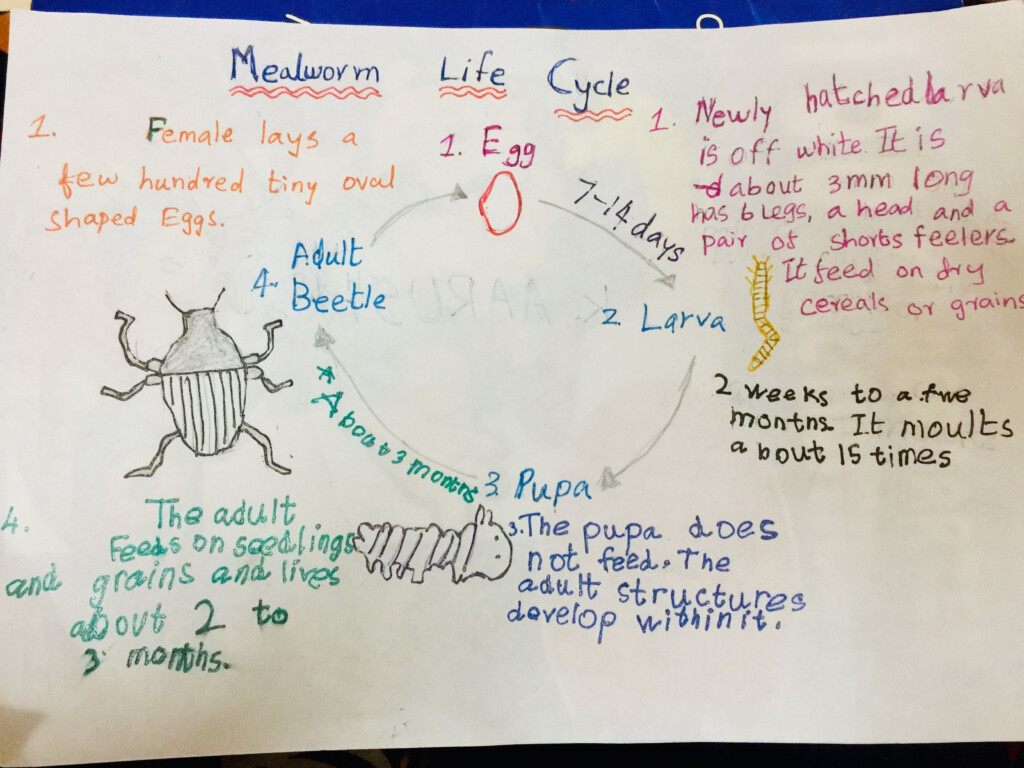 Mealworm Life Cycle
1. Female lays a
few hundred tiny oval
shaped Eggs.
1. Egg
7-14 days
1. Newly hatched larva
is off white. It is
about 3mm long
has 6 Legs, a head and a
pair of shorts feelers.
It feed on dry
cereals or grains
2 Larva
2 weeks to a few
months It moults
about 15 times
3. Pupa
3. The pupa does
not feed. The
adult structures
develop within it.
* About 3 months
4. Adult
Beetle
4. The adult
Feeds on seedlings
and grains and lives
about 2 to
3 months.